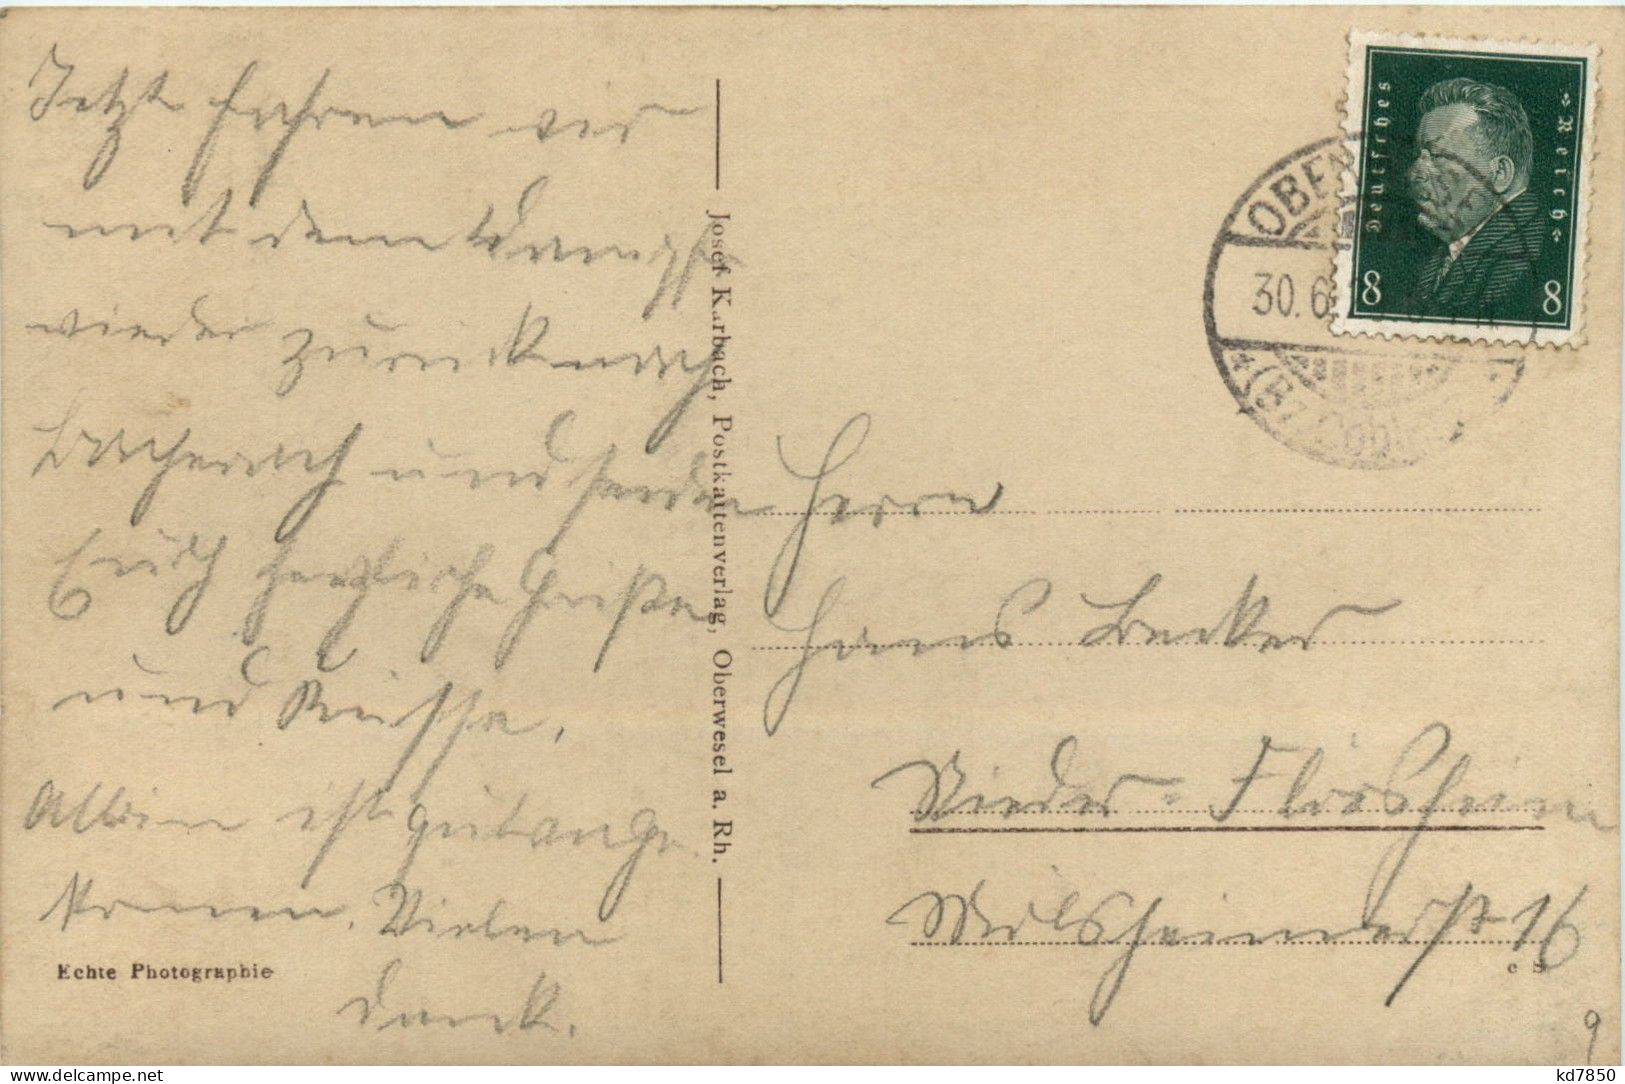 Jetzt fahren wir
mit dem Dampfer
wieder zurück nach
Bacharach und senden
Euch herzliche Grüße
und Küsse,
Albin ist gut ange
kommen. Vielen
Dank.
Echte Photographie
Josef Karbach, Postkartenverlag, Oberwesel a. Rh.
Deutsches Reich
8 8
30.6
(Bz. Cob
Herrn
Hans Becker
Nieder-Flörsheim
16
9
kd7850